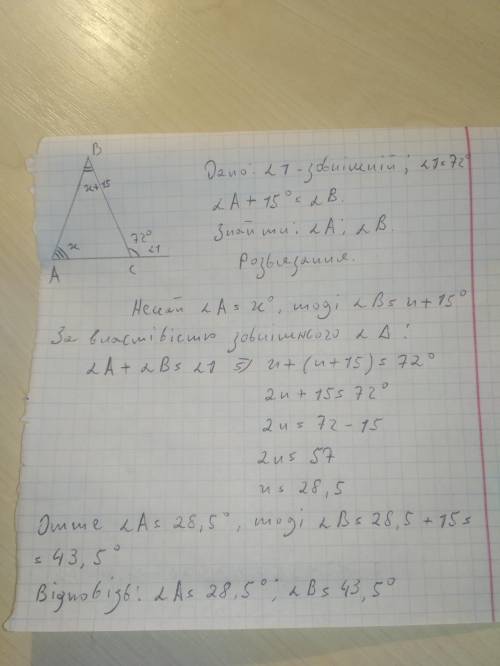 B
x+15
x
72°
∠1
A
C
Дано: ∠1-зовнішній; ∠1=72°
∠A + 15° = ∠B.
Знайти: ∠A; ∠B.
Розвьязання.
Нехай ∠A = x°, тоді ∠B = x + 15°
За властівістю зовнішнього ∠ Δ:
∠A + ∠B = ∠1 ⇒ x + (x + 15) = 72°
2x + 15 = 72°
2x = 72 - 15
2x = 57
x = 28,5
Отже ∠A = 28,5°, тоді ∠B = 28,5 + 15 =
= 43,5°
Відповізь: ∠A = 28,5°; ∠B = 43,5°